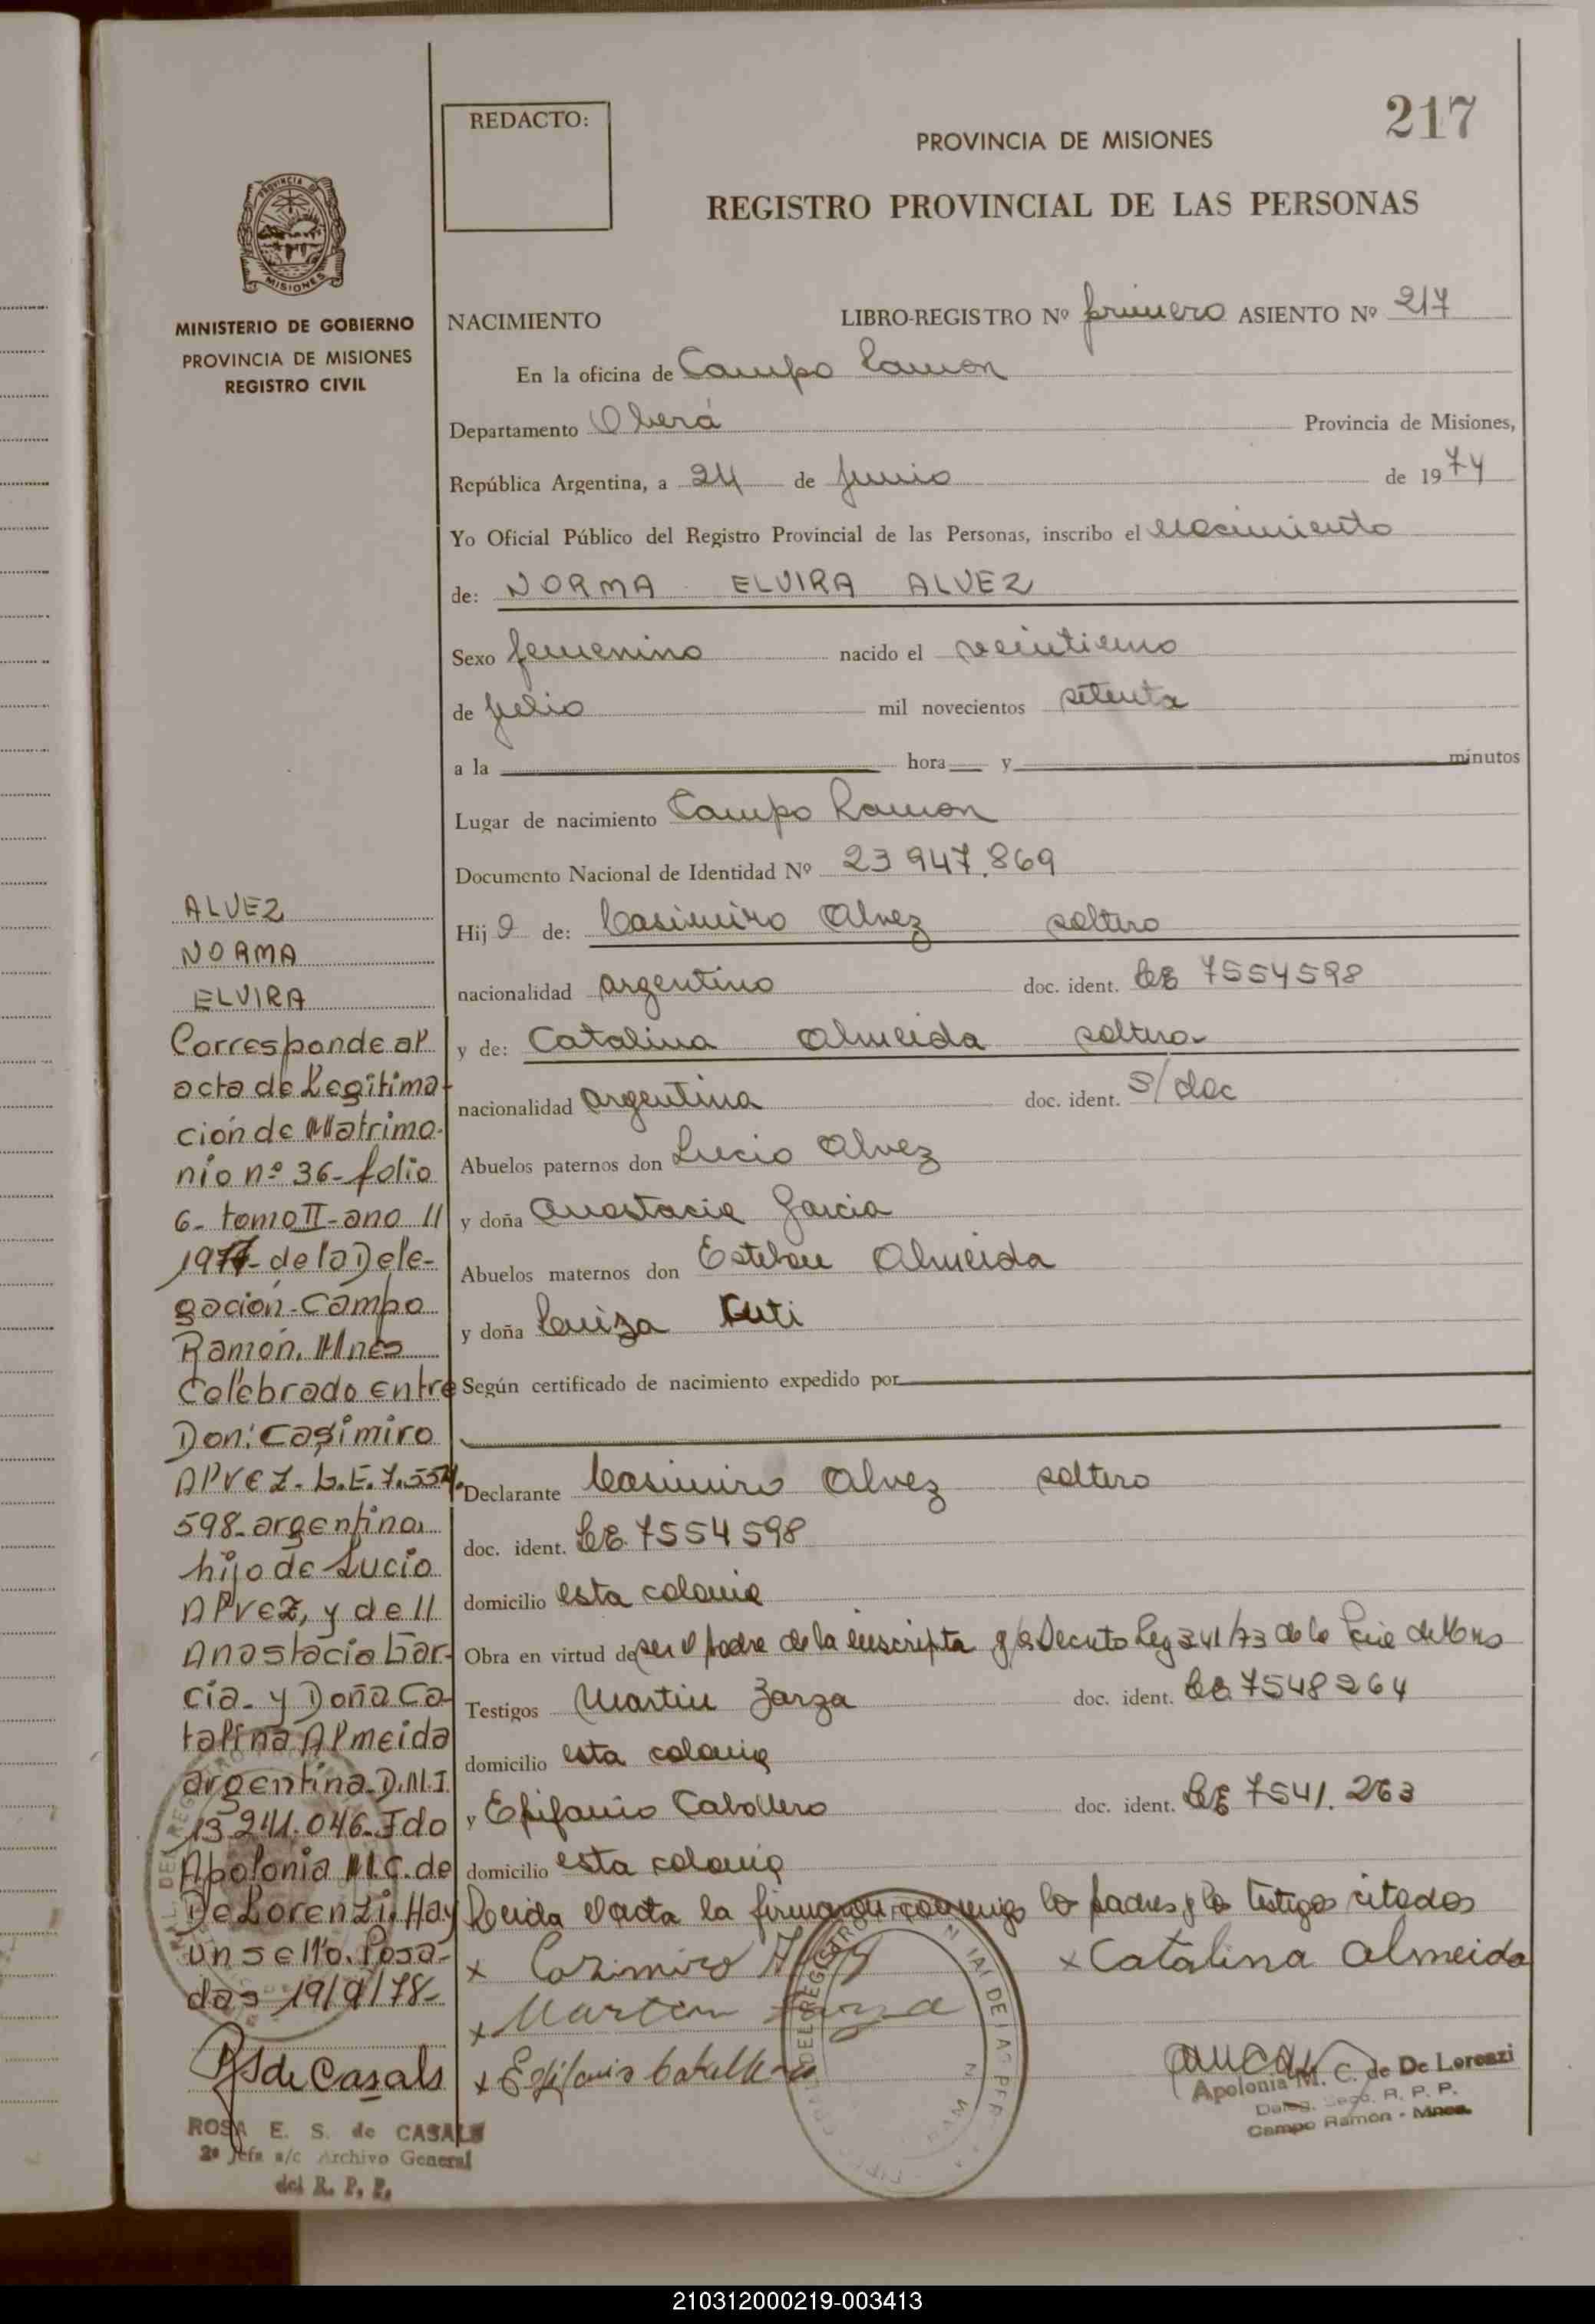 217
REDACTO:
PROVINCIA DE MISIONES
REGISTRO PROVINCIAL DE LAS PERSONAS
PROVINCIA DE
MISIONES
MINISTERIO DE GOBIERNO
PROVINCIA DE MISIONES
REGISTRO CIVIL
NACIMIENTO LIBRO-REGISTRO Nº primero ASIENTO Nº 217
En la oficina de Campo Ramon
Departamento Oberá Provincia de Misiones,
República Argentina, a 24 de Junio de 1974
Yo Oficial Público del Registro Provincial de las Personas, inscribo el nacimiento
de: NORMA ELVIRA ALVEZ
Sexo femenino nacido el veintiuno
de julio mil novecientos setenta
a la hora y minutos
Lugar de nacimiento Campo Ramon
Documento Nacional de Identidad Nº 23 947.869
Hija de: Casimiro Alvez soltero
nacionalidad argentino doc. ident. LE 7554598
y de: Catalina Almeida soltera
nacionalidad argentina doc. ident. s/doc
Abuelos paternos don Lucio Alvez
y doña Anastacia Garcia
Abuelos maternos don Esteban Almeida
y doña Luiza
Según certificado de nacimiento expedido por
Declarante Casimiro Alvez soltero
doc. ident. LE. 7554598
domicilio esta colonia
Obra en virtud de ser el padre de la inscripta Decreto Ley 341/73 de la
Testigos Martin Zarza doc. ident. LE 7548264
domicilio esta colonia
y Epifanio Caballero doc. ident. LE 7541.263
domicilio esta colonia
Leida el acta la firman conmigo los padres y los testigos citados
x Casimiro x Catalina Almeida
x Martin Zarza
x Epifanio Caballero
Apolonia M. C. de De Lorenzi
Deleg. R. P. P.
Campo Ramón - Mnes.
ALVEZ
NORMA
ELVIRA
Corresponde al
acta de Legitima-
ción de Matrimo-
nio nº 36-folio
6- tomo II-ano //
1977- de la Dele-
gación-Campo
Ramón. Mnes
Celebrado entre
Don: Casimiro
Alvez. L.E. 7.554.
598-argentino,
hijo de Lucio
Alvez, y de //
Anastacia Gar-
cia- y Doña Ca-
talina Almeida
argentina-D.N.I.
13.241.046-Fdo
Apolonia M.C. de
De Lorenzi. Hay
un sello. Posa-
das 19/9/78-
RS de Casals
ROSA E. S. de CASALS
2º Jefa a/c Archivo General
del R. P. P.
210312000219-003413